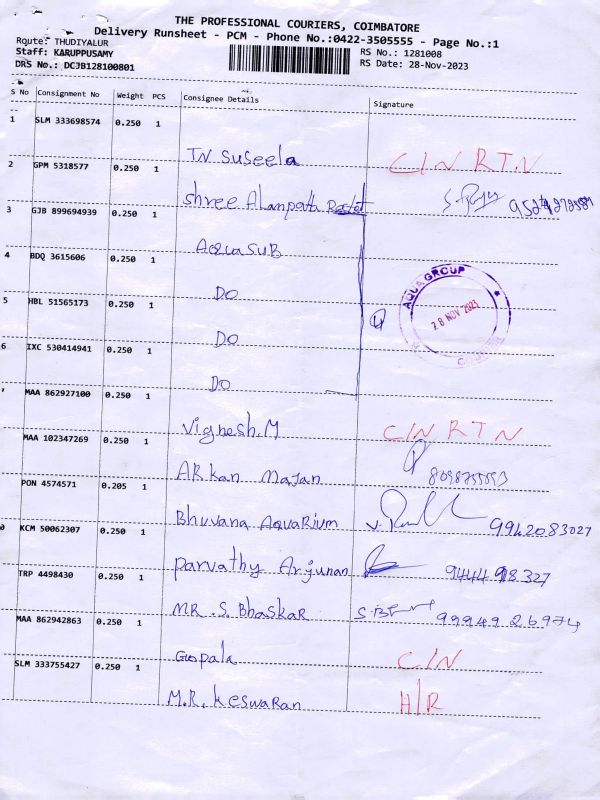 THE PROFESSIONAL COURIERS, COIMBATORE
Delivery Runsheet - PCM - Phone No.:0422-3505555 - Page No.:1
Route: THUDIYALUR
RS No.: 1281008
Staff: KARUPPUSAMY
RS Date: 28-Nov-2023
DRS No.: DCJB128100801
S No Consignment No Weight PCS Consignee Details Signature
1 SLM 333698574 0.250 1
TN Suseela C/N RTN
2 GPM 5318577 0.250 1
Shree
3 GJB 899694939 0.250 1
AQUASUB
4 BDQ 3615606 0.250 1
DO
AQUA GROUP
28 NOV 2023
5 HBL 51565173 0.250 1
DO
4
6 IXC 530414941 0.250 1
DO
7 MAA 862927100 0.250 1
Vighesh.M C/N RTN
MAA 102347269 0.250 1
ARkan
PON 4574571 0.205 1
Bhuvana AQUARium 9942083027
0 KCM 50062307 0.250 1
Parvathy Arjunan
TRP 4498430 0.250 1
MR S. BhaskaR 99949 26974
MAA 862942863 0.250 1
Gopala C/N
SLM 333755427 0.250 1
M.R. KeswaRan H/R